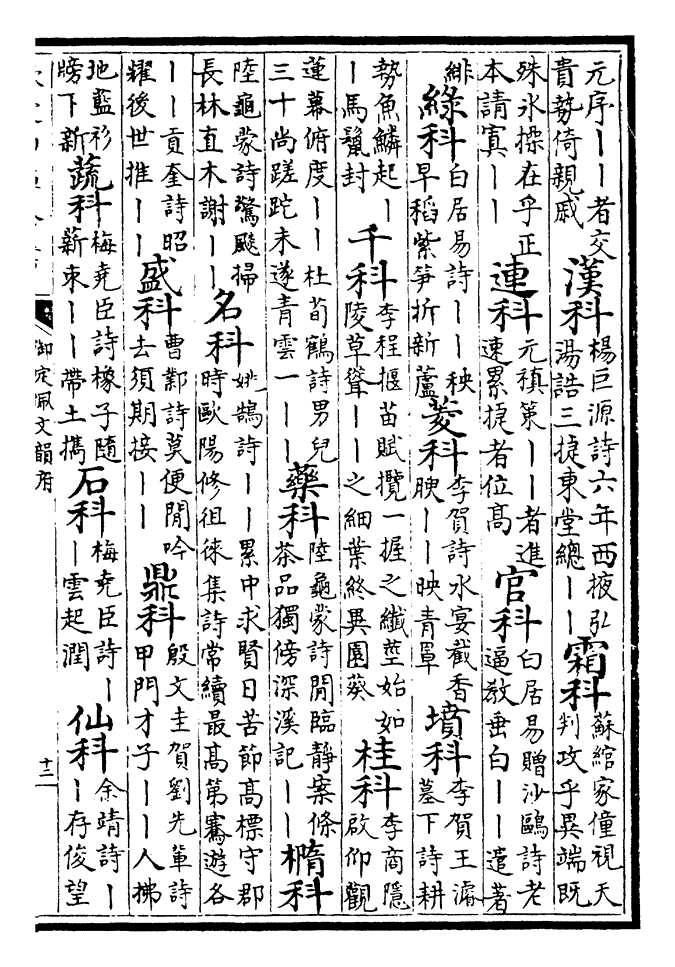 元序丨丨者交
貴勢倚親戚
漢科
楊巨源詩六年西掖弘
湯誥三捷東堂總丨丨
霜科
蘇綰家僮視天
判攻乎異端既
殊氷操在乎正
本請寘丨丨
連科
元稹策丨丨者進
速累捷者位高
官科
白居易贈沙鷗詩老
逼教垂白丨丨遣著
緋
綠科
白居易詩丨丨秧
早稻紫笋折新蘆
菱科
李賀詩水宴截香
腴丨丨映青罩
墳科
李賀王濬
墓下詩耕
勢魚鱗起丨
丨馬鬛封
千科
李程揠苗賦攬一握之纖莖始如
陵草聳丨丨之細葉終異園葵
桂科
李商隱
啟仰觀
蓮幕俯度丨丨杜荀鶴詩男兒
三十尚蹉跎未遂青雲一丨丨
藥科
陸龜蒙詩閒臨靜案條
茶品獨傍深溪記丨丨
橢科
陸龜蒙詩驚颷掃
長林直木謝丨丨
名科
姚鵠詩丨丨累中求賢日苦節高標守郡
時歐陽修徂徠集詩常續最高第騫遊各
丨丨貢奎詩昭
耀後世推丨丨
盛科
曹鄴詩莫便閒吟
去須期接丨丨
鼎科
殷文圭賀劉先輩詩
甲門才子丨丨人拂
地藍衫
牓下新
蔬科
梅堯臣詩椽子隨
薪束丨丨帶土擕
石科
梅堯臣詩丨
丨雲起潤
仙科
余靖詩丨
丨存俊望
御定佩文韻府
十二